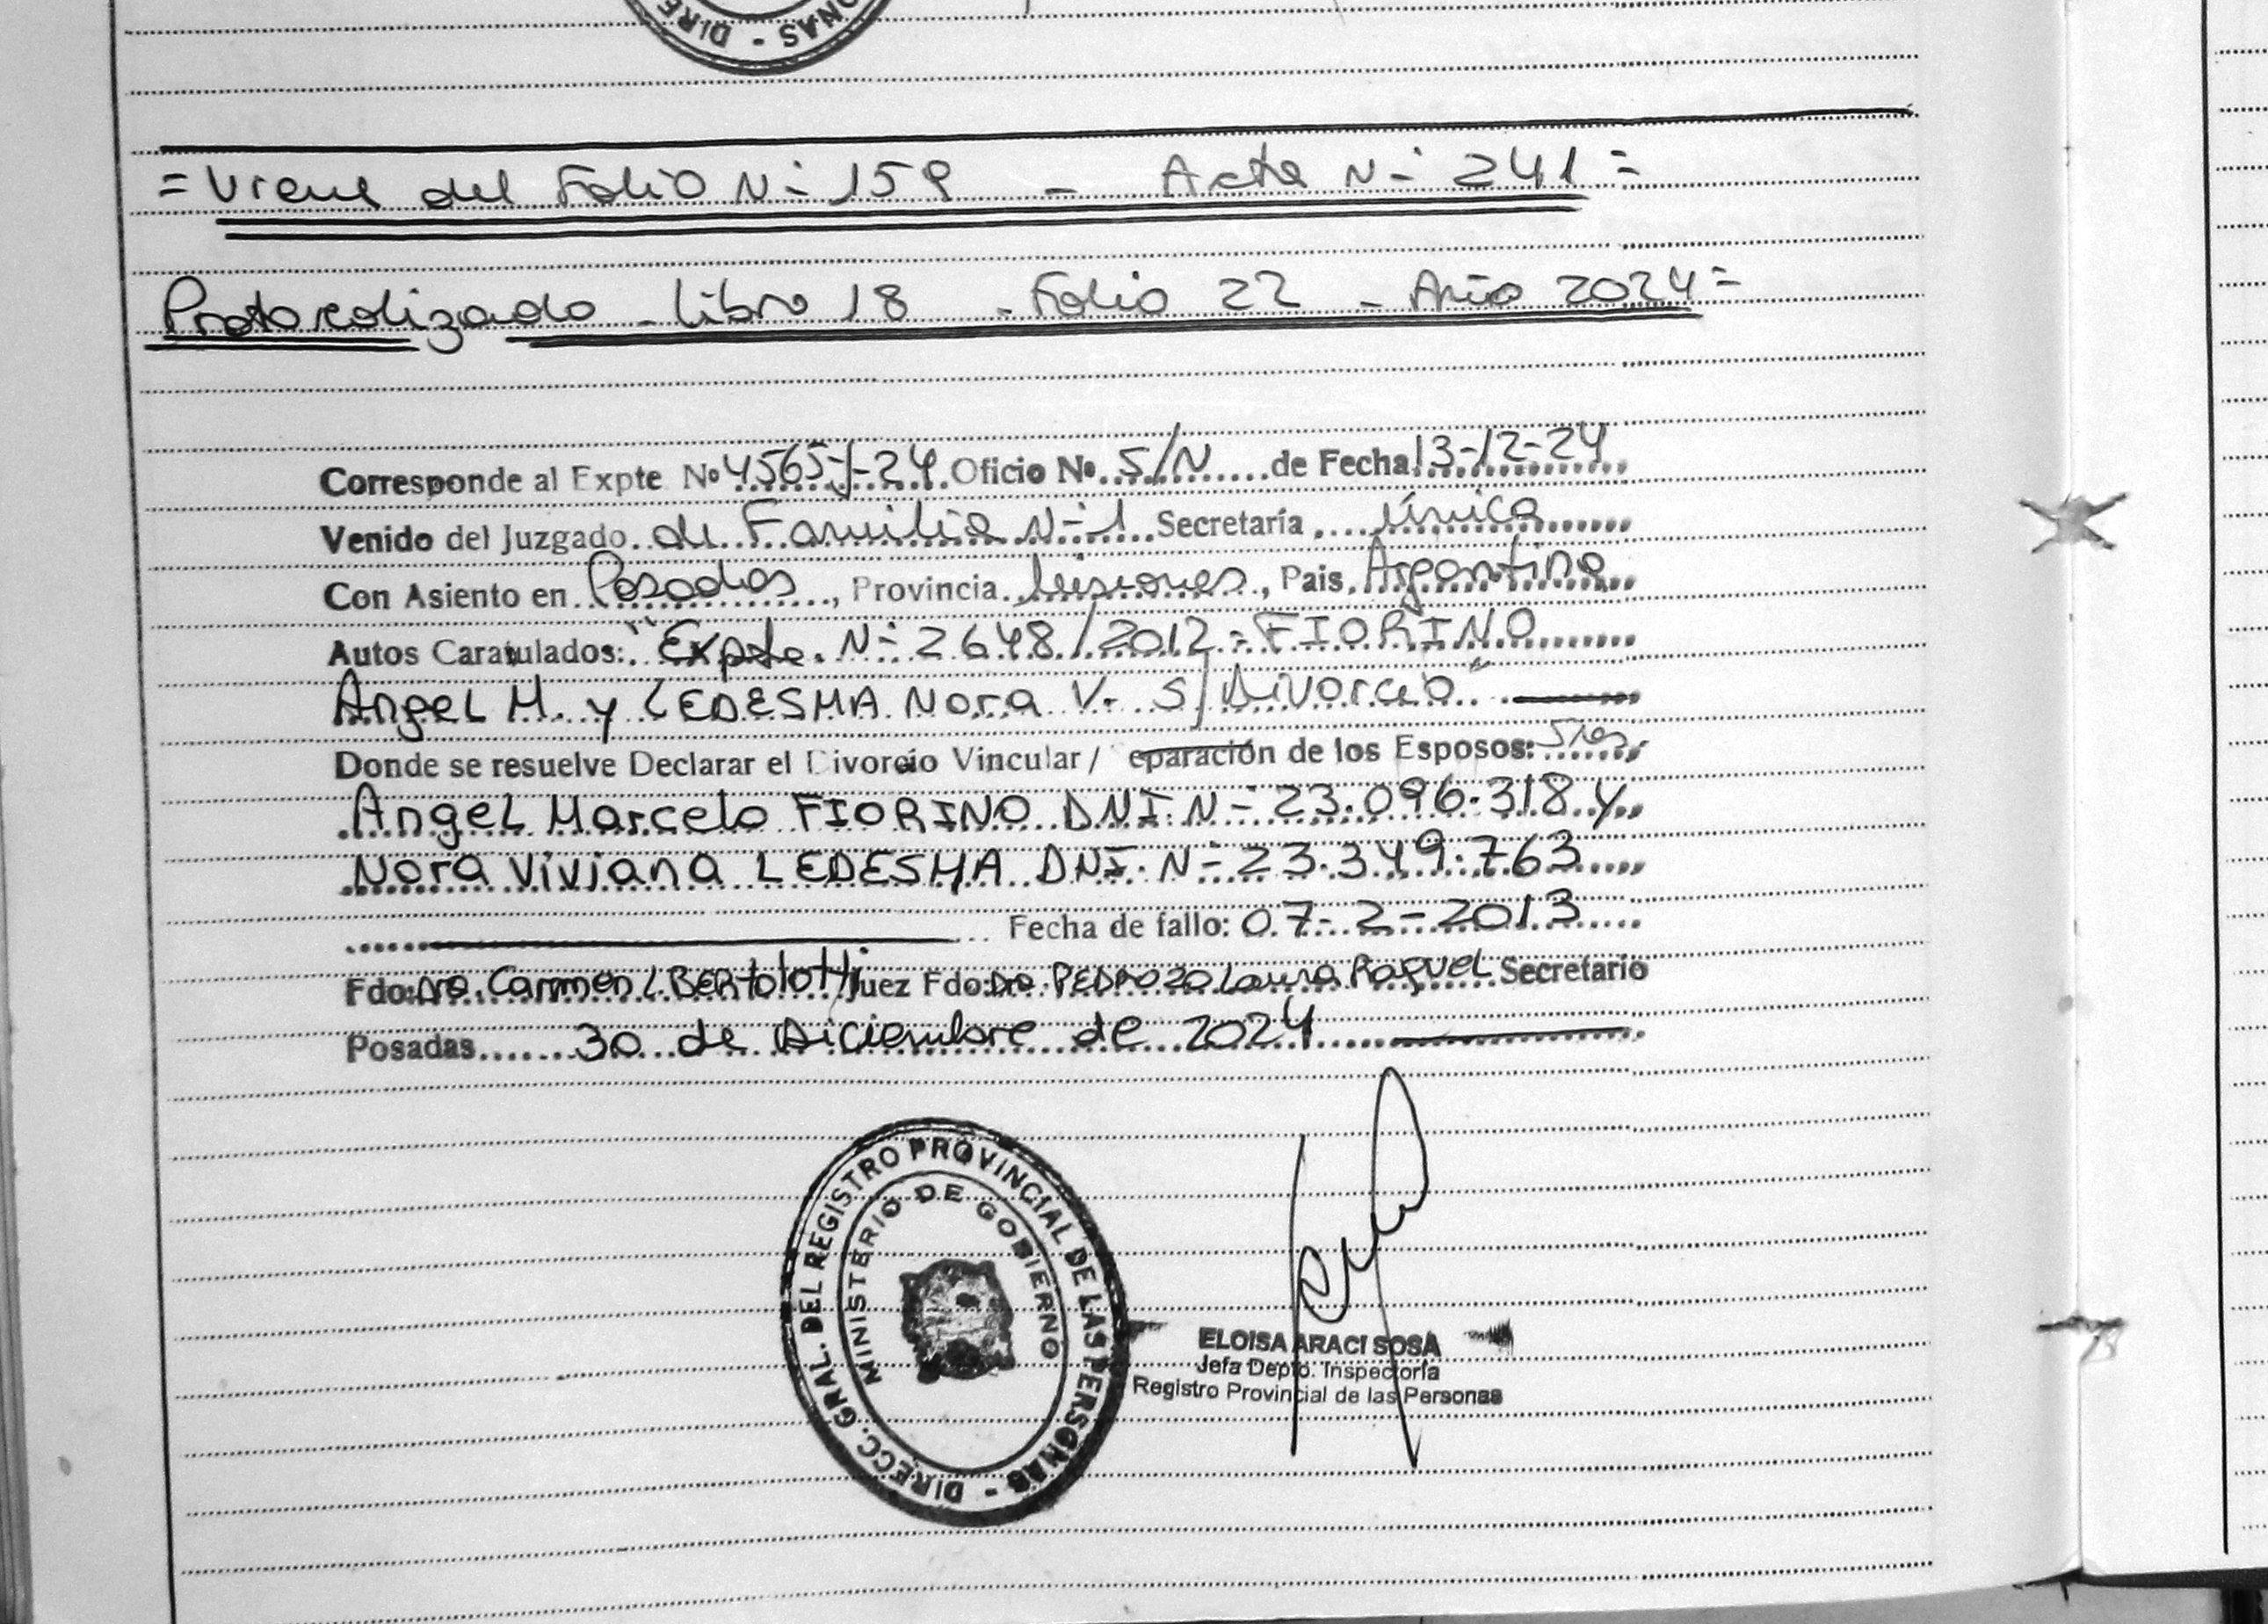 ONAS - DIRE
= Viene del Folio N- 159 - Acta N- 241 =
Protocolizado - Libro 18 - Folio 22 - Año 2024 =
Corresponde al Expte Nº 4565-J-24 Oficio Nº S/N de Fecha 13-12-24
Venido del Juzgado de Familia N-1 Secretaría única
Con Asiento en Posadas, Provincia Misiones, Pais Argentina
Autos Caratulados: "Expte. N- 2648/2012 - FIORINO
Angel M. y LEDESMA Nora V. S/Divorcio"
Donde se resuelve Declarar el Divorcio Vincular / eparación de los Esposos: Sres.
Angel Marcelo FIORINO DNI. N- 23.096.318 y
Nora Viviana LEDESMA DNI. N- 23.349.763
Fecha de fallo: 07-2-2013
Fdo: Dra. Carmen L. Bertolotti Juez Fdo: Dra PEDROZO Laura Raquel Secretario
Posadas 30 de Diciembre de 2024
DIRECC. GRAL. DEL REGISTRO PROVINCIAL DE LAS PERSONAS -
MINISTERIO DE GOBIERNO
ELOISA ARACI SOSA
Jefa Depto. Inspectoría
Registro Provincial de las Personas